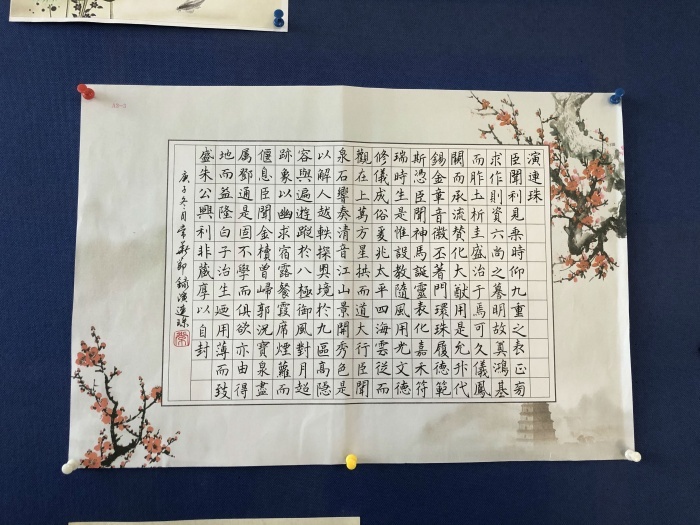 演連珠
臣聞利見乘時仰九重之表正芻
求作則資六尚之謩明故奠鴻基
而胙土析圭盛治于焉可久儀鳳
闕而承流贊化大猷用是允升代
錫金章音徽丕著門環珠履德範
斯憑臣聞神馬誕靈表化嘉禾符
瑞時生是惟設教隨風用光文德
修儀成俗爰兆太平四海雲從而
觀在上萬方星拱而道大行臣聞
泉石響奏清音江山景開秀色是
以解人越軼探奧境於九區高隱
容與遍遊蹤於八極御風對月超
跡象以幽求宿露餐霞席煙蘿而
偃息臣聞金櫝曾歸郭況寶泉盡
屬鄧通是固不學而俱欲亦由得
地而益隆白子治生廼用薄而致
盛朱公興利非藏厚以自封
庚子冬月常新節錄演連珠